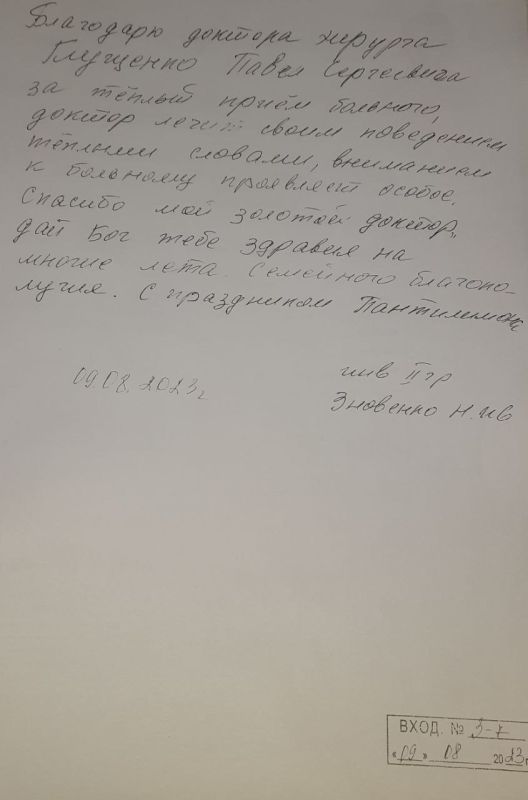 Благодарю доктора хирурга
Глущенко Павла Сергеевича
за тёплый приём больного,
доктор лечит своим поведением
тёплыми словами, вниманием
к больному проявляет особое.
Спасибо мой золотой доктор,
дай Бог тебе здравия на
многие лета. Семейного благопо-
лучия. С праздником Пантилимона
09.08.2023г
инв II гр
Зновенко Н.Ив
ВХОД. № З-7
«09» 08 2023 г